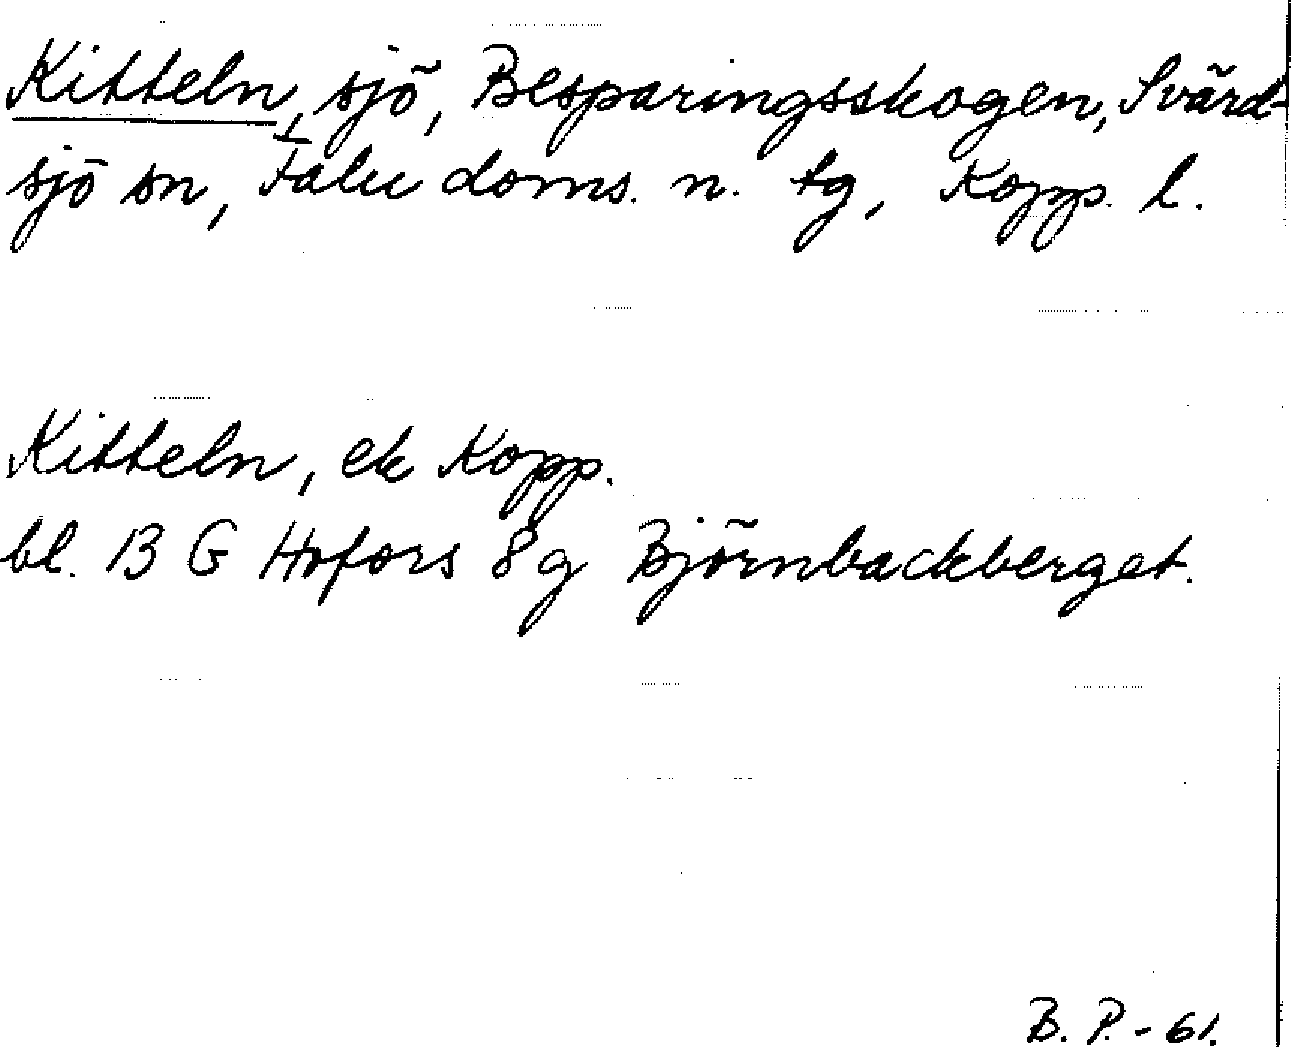 Kitteln, sjö, Besparingsskogen, Svärd-
sjö sn, Falu doms. n. tg, Kopp. l.
Kitteln, ek Kopp.
bl. 13 G Hofors 8g Björnbackberget.
B. P. - 61.